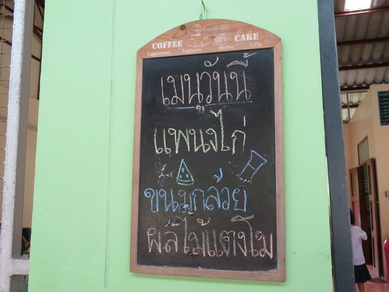 COFFEE CAKE
เมนูวันนี้
แพนงไก่
ขนมกล้วย
ผลไม้แตงโม